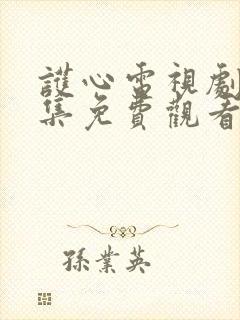 護心電視劇
集免費觀看
孫業英